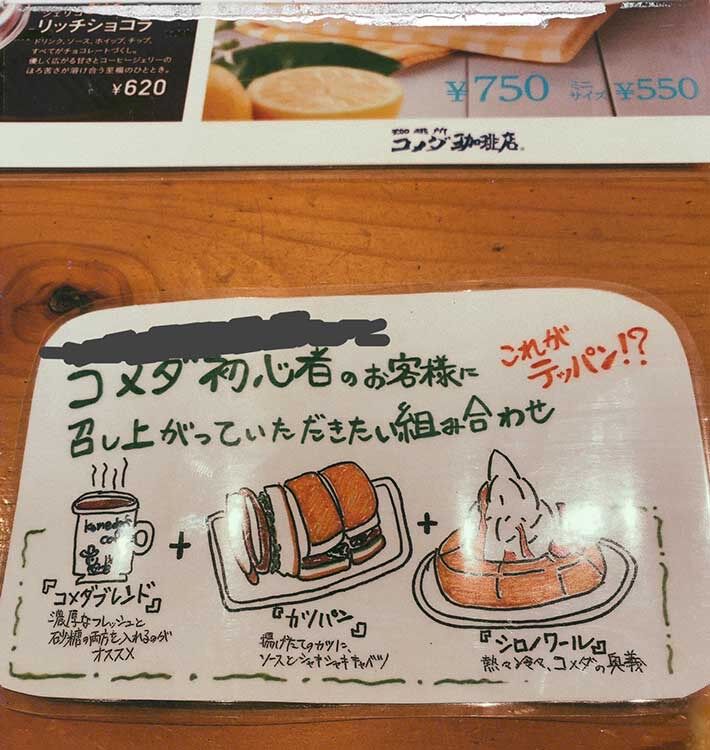 リッチショコラ
ドリンク、ソース、ホイップ、チップ、
すべてがチョコレートづくし。
優しく広がる甘さとコーヒージェリーの
ほろ苦さが溶け合う至福のひととき。
¥620
¥750 ミニサイズ ¥550
珈琲所
コメダ珈琲店
コメダ初心者のお客様に
召し上がっていただきたい組み合わせ
これが
テッパン!?
komeda's
coffee
+
+
『コメダブレンド』
濃厚なフレッシュと
砂糖の両方を入れるのが
オススメ
『カツパン』
揚げたてのカツに、
ソースとシャキシャキキャベツ
『シロノワール』
熱々冷々、コメダの奥義